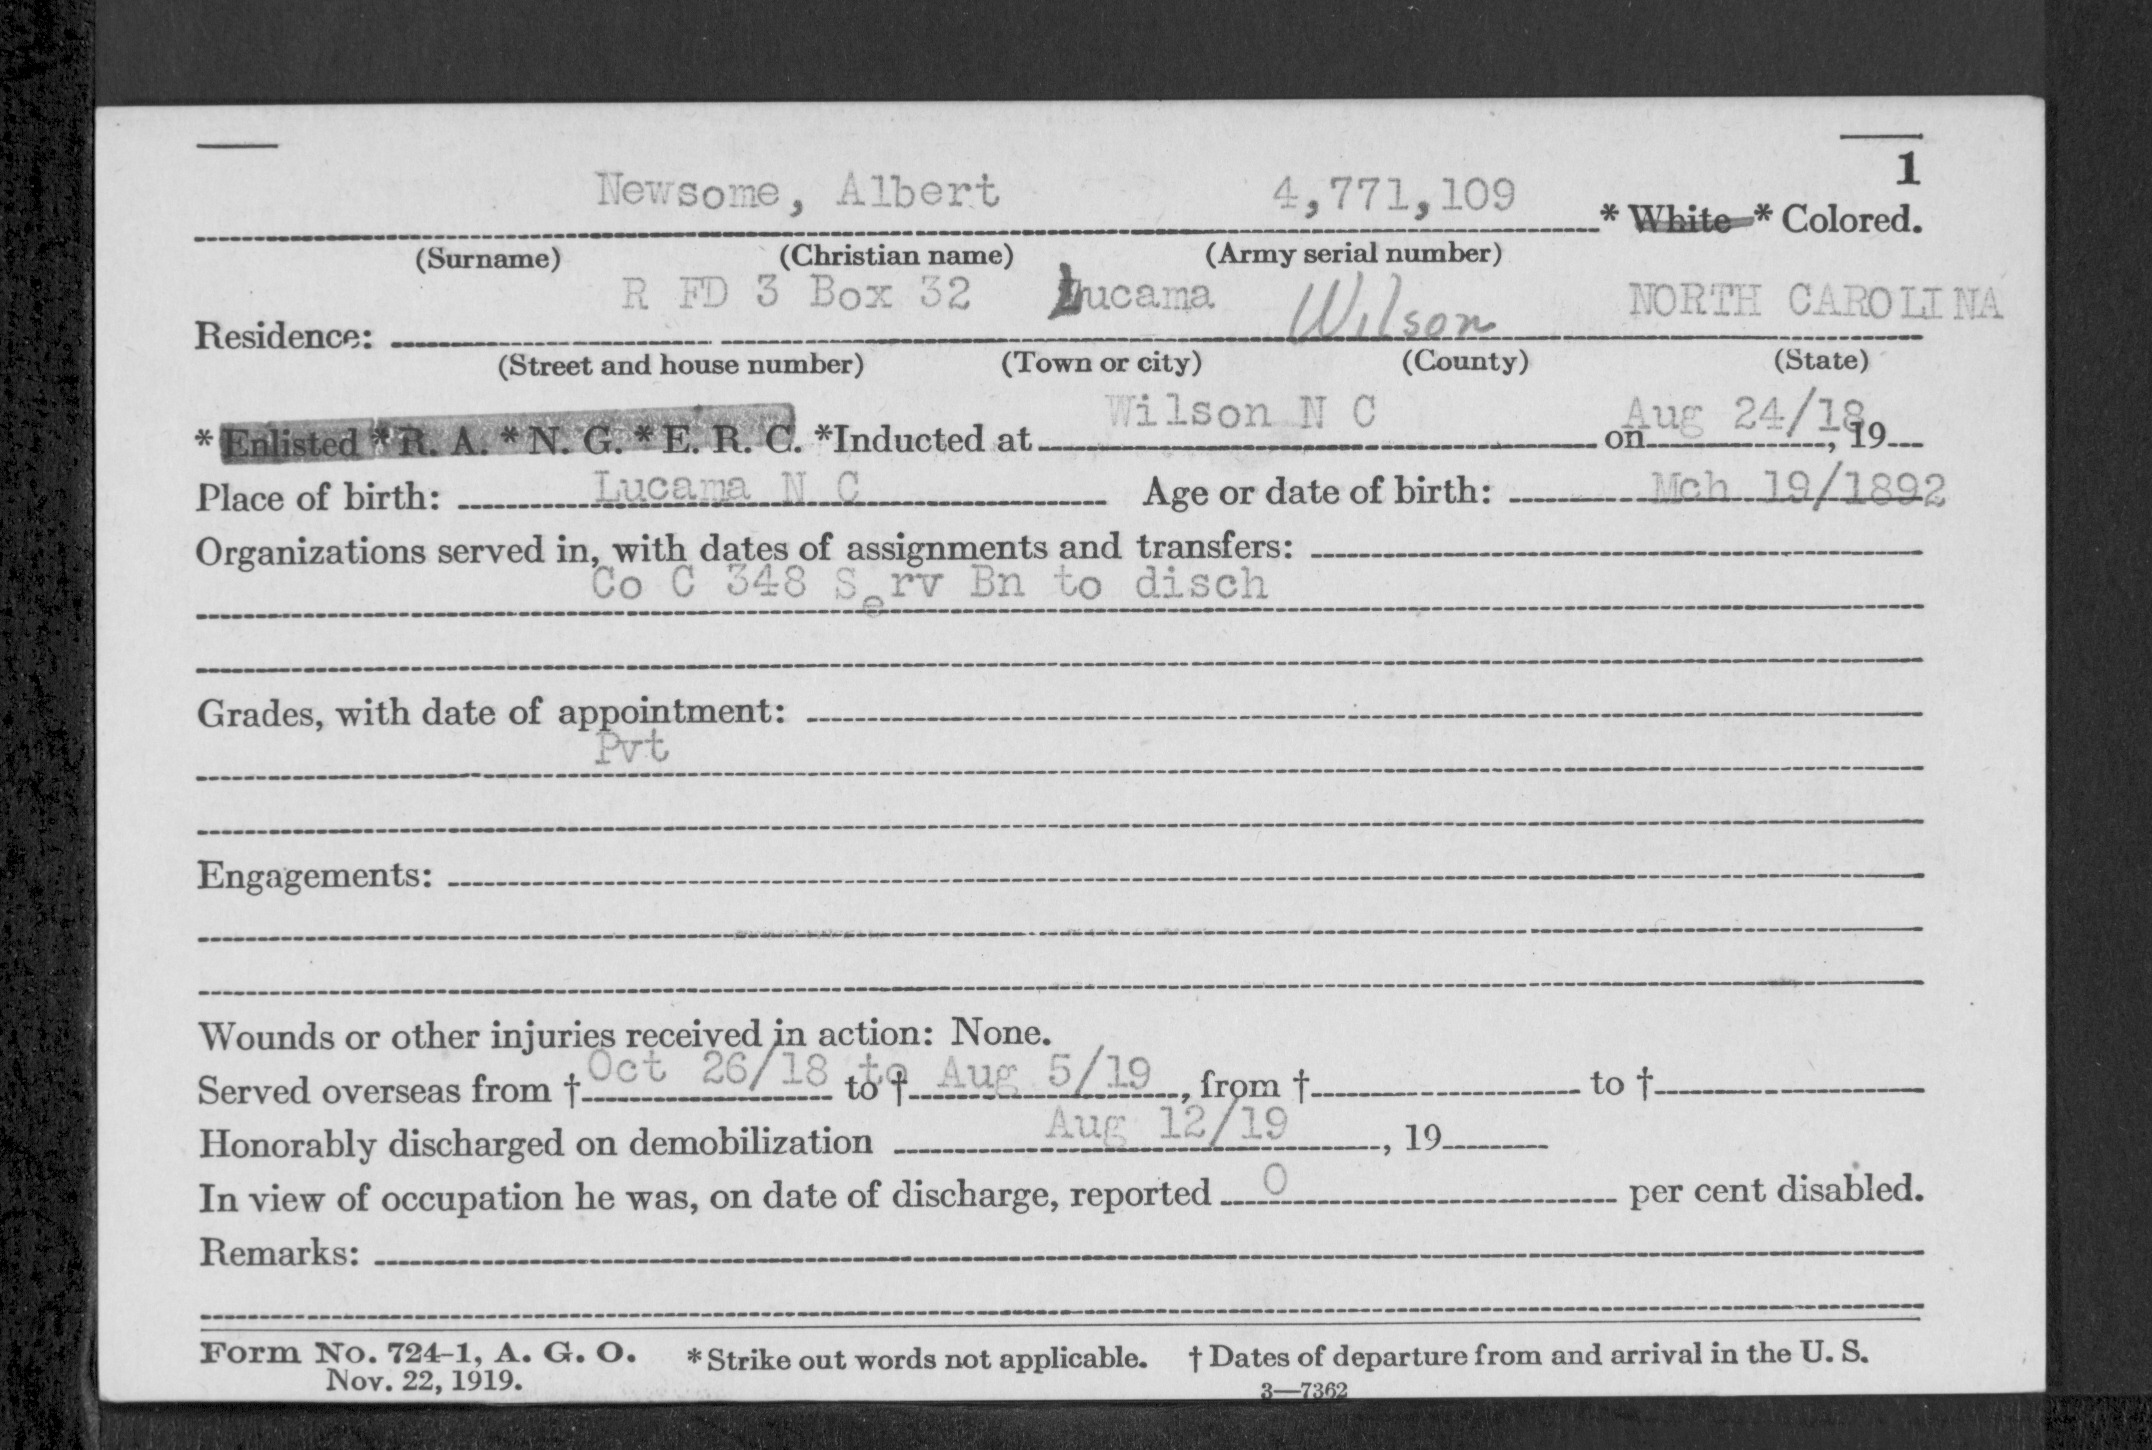 1
Newsome, Albert 4,771,109 * White * Colored.
(Surname) (Christian name) (Army serial number)
R FD 3 Box 32 Lucama Wilson NORTH CAROLINA
Residence:
(Street and house number) (Town or city) (County) (State)
* Enlisted * R. A. * N. G. * E. R. C. *Inducted at Wilson N C on Aug 24/18, 19
Place of birth: Lucama N C Age or date of birth: Mch 19/1892
Organizations served in, with dates of assignments and transfers:
Co C 348 Serv Bn to disch
Grades, with date of appointment:
Pvt
Engagements:
Wounds or other injuries received in action: None.
Served overseas from † Oct 26/18 to to † Aug 5/19, from † to †
Honorably discharged on demobilization Aug 12/19, 19
In view of occupation he was, on date of discharge, reported 0 per cent disabled.
Remarks:
Form No. 724-1, A. G. O. * Strike out words not applicable. † Dates of departure from and arrival in the U. S.
Nov. 22, 1919. 3—7362